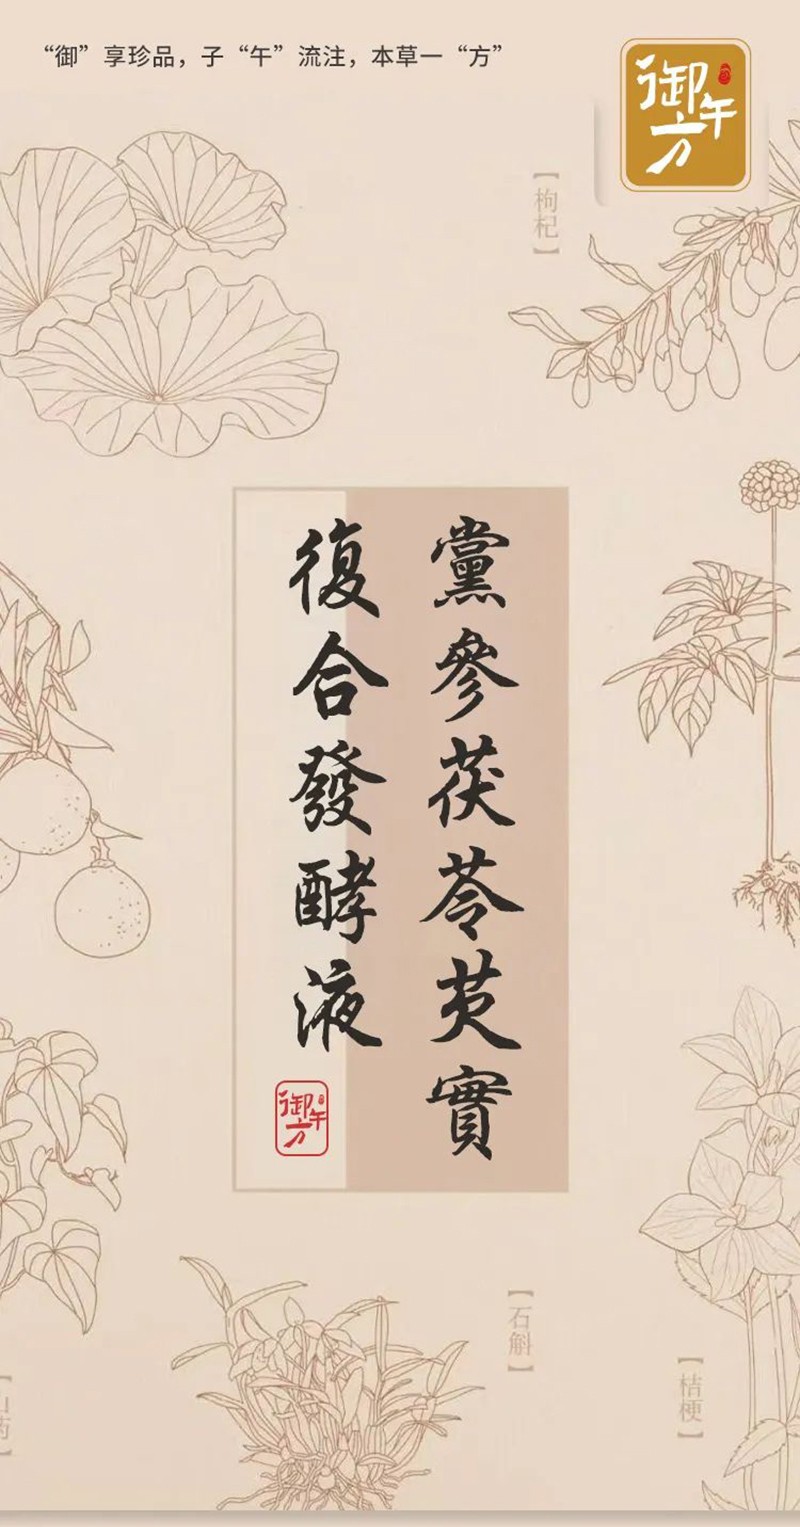 “御”享珍品，子“午”流注，本草一“方”
御午方
【枸杞】
黨參茯苓芡實
復合發酵液
御午方
【石斛】
【桔梗】